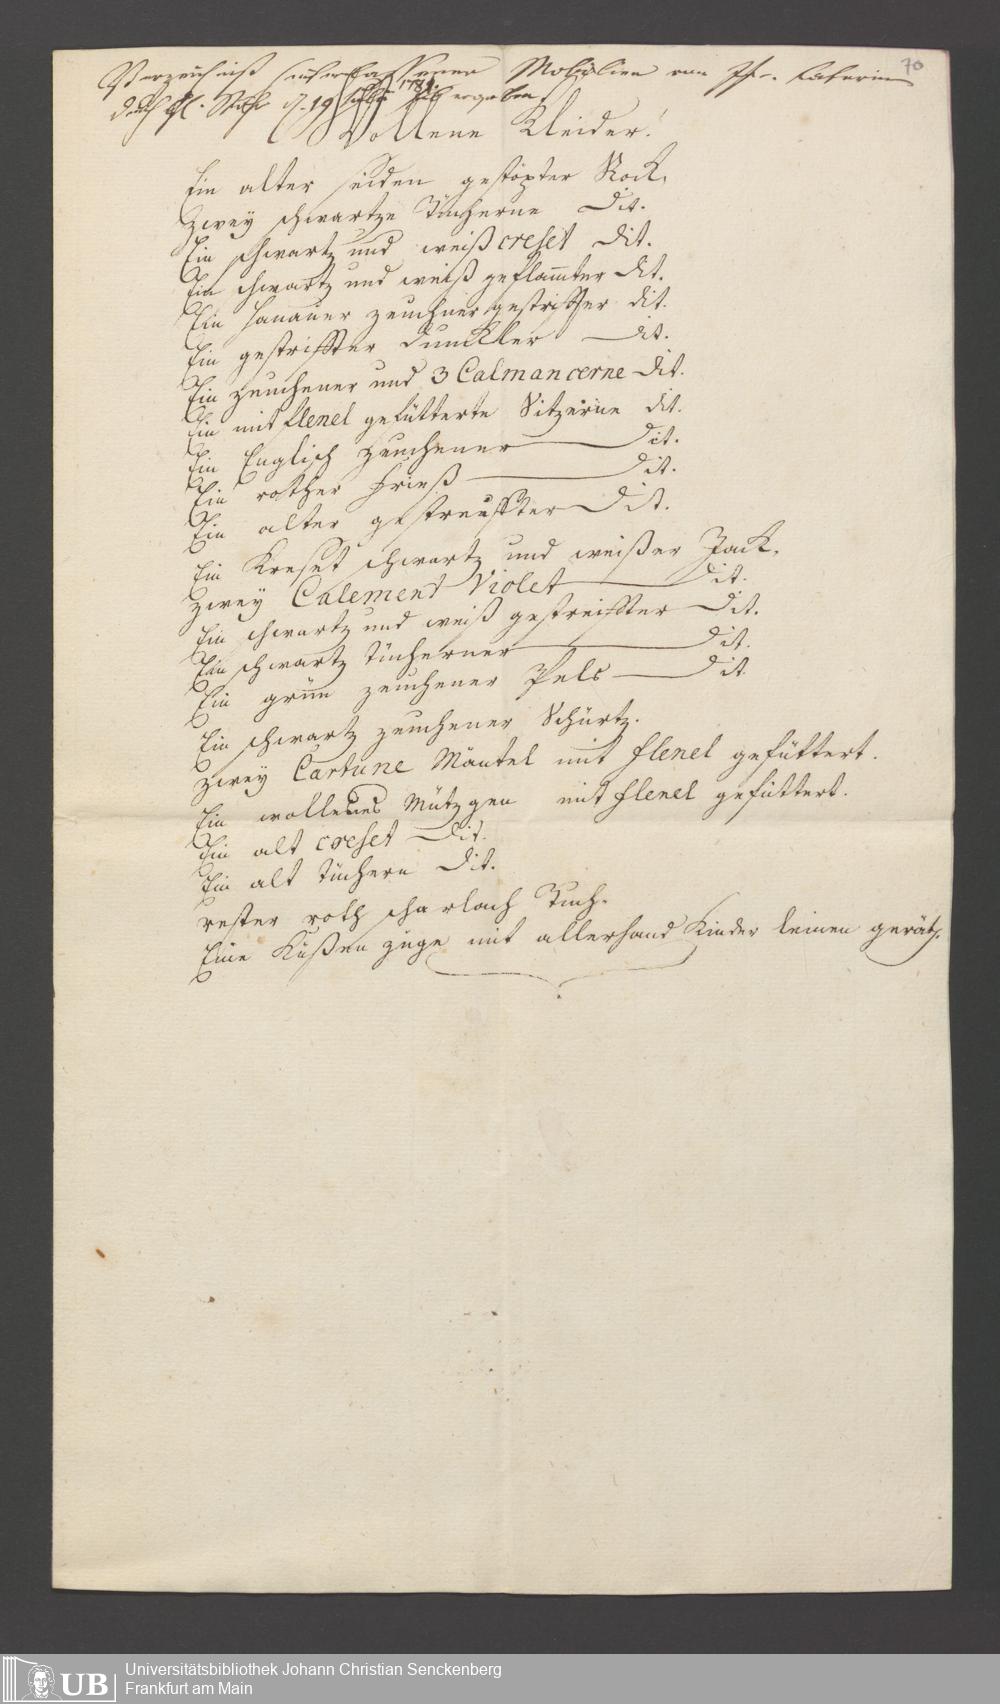 70
Verzeichniß hinterlassener Mobilien von Fr. Catharin
durch H. 19 1781. übergeben.
Wollene Kleider.
Ein alter seiden gestöpter Rock.
Zwey schwartze Tücherne Dit.
Ein schwartz und weiß creset Dit.
Ein schwartz und weiß geflam̄ter Dit.
Ein Hanauer zeuchner gestriffter dit.
Ein gestriffter dunckler Dit.
Ein zeuchener und 3 Calmancerne Dit.
Ein mit flenel gefütterte Sitzerne dit.
Ein Englisch zeuchener Dit.
Ein rother Frieß Dit.
Ein alter gestreuffter Dit.
Ein Kreset schwartz und weißer Jack.
Zwey Calement Violet Dit.
Ein schwartz und weiß gestreiffter Dit.
Ein schwartz Tücherner Dit.
Ein grün zeuchener Pels Dit
Ein schwartz zeuchener Schürtz.
Zwey Cartune Mäntel mit flenel gefüttert.
Ein wollenes Mützgen mit flenel gefüttert.
Ein alt creset Dit.
Ein alt Tüchern Dit.
rester roth scharlach Tuch.
Eine Küßen züge mit allerhand Kinder leinen geräth.
UB
Universitätsbibliothek Johann Christian Senckenberg
Frankfurt am Main